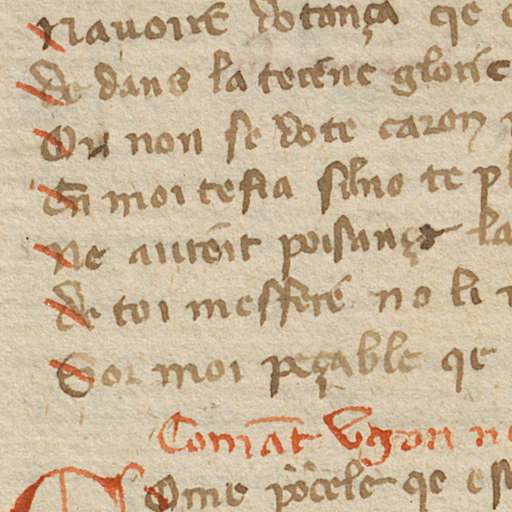 Navoire dotança qe
de dans la terene glorie
Ou non se dote caron
En moi tefia silno te pl
Ne autreit poisançe la
de toi mesfere no li
Sor moi peçable qe
Comāt Vgon
Ome porcele qe es